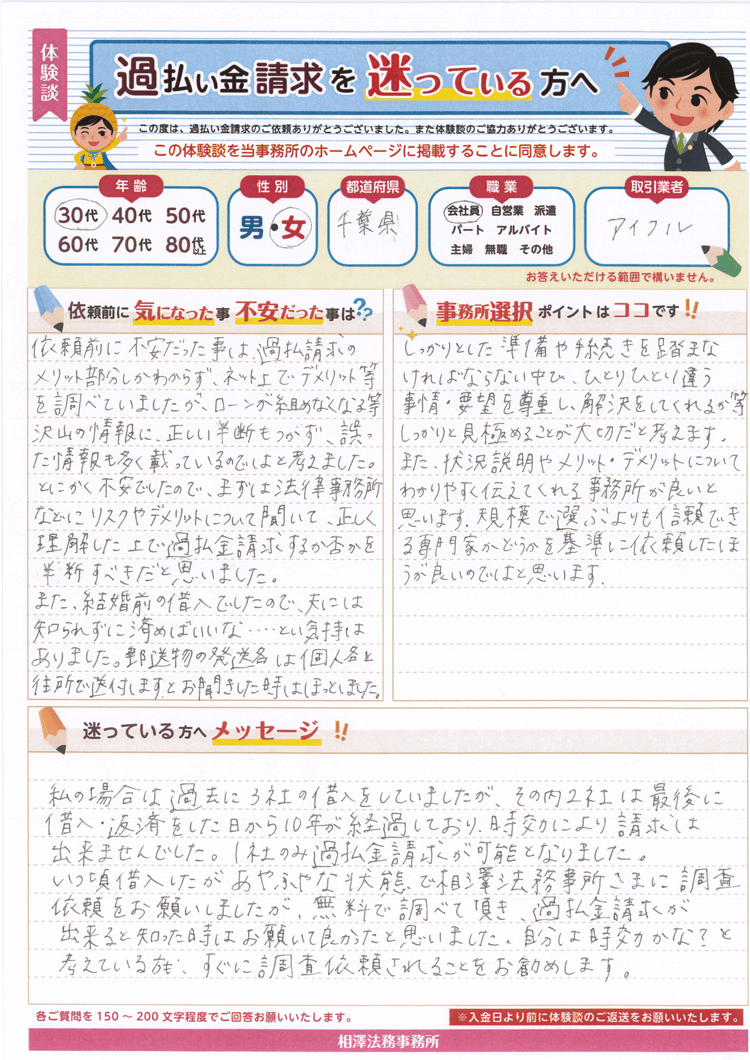 体験談
過払い金請求を迷っている方へ
この度は、過払い金請求のご依頼ありがとうございました。また体験談のご協力ありがとうございます。
この体験談を当事務所のホームページに掲載することに同意します。
年齢
30代 40代 50代
60代 70代 80代以上
性別
男・女
都道府県
千葉県
職業
会社員 自営業 派遣
パート アルバイト
主婦 無職 その他
取引業者
アイフル
お答えいただける範囲で構いません。
依頼前に気になった事 不安だった事は??
依頼前に不安だった事は、過払請求の
メリット部分しかわからず、ネット上でデメリット等
を調べていましたが、ローンが組めなくなる等
沢山の情報に、正しい判断もつかず、誤っ
た情報も多く載っているのではと考えました。
とにかく不安でしたので、まずは法律事務所
などにリスクやデメリットについて聞いて、正しく
理解した上で過払金請求するか否かを
判断すべきだと思いました。
また、結婚前の借入でしたので、夫には
知られずに済めばいいな‥‥という気持は
ありました。郵送物の発送名は個人名と
住所で送付しますとお聞きした時はほっとしました。
事務所選択ポイントはココです!!
しっかりとした準備や手続きを踏まな
ければならない中で、ひとりひとり違う
事情・要望を尊重し、解決をしてくれるか等
しっかりと見極めることが大切だと考えます。
また、状況説明やメリット・デメリットについて
わかりやすく伝えてくれる事務所が良いと
思います。規模で選ぶよりも信頼でき
る専門家かどうかを基準に依頼したほ
うが良いのではと思います。
迷っている方へメッセージ!!
私の場合は過去に3社の借入をしていましたが、その内2社は最後に
借入・返済をした日から10年が経過しており、時効により請求は
出来ませんでした。1社のみ過払金請求が可能となりました。
いつ頃借入したかあやふやな状態で相澤法務事所さまに調査
依頼をお願いしましたが、無料で調べて頂き、過払金請求が
出来ると知った時はお願いして良かったと思いました。自分は時効かな?と
考えている方も、すぐに調査依頼されることをお勧めします。
各ご質問を150〜200文字程度でご回答お願いいたします。
※入金日より前に体験談のご返送をお願いいたします。
相澤法務事務所